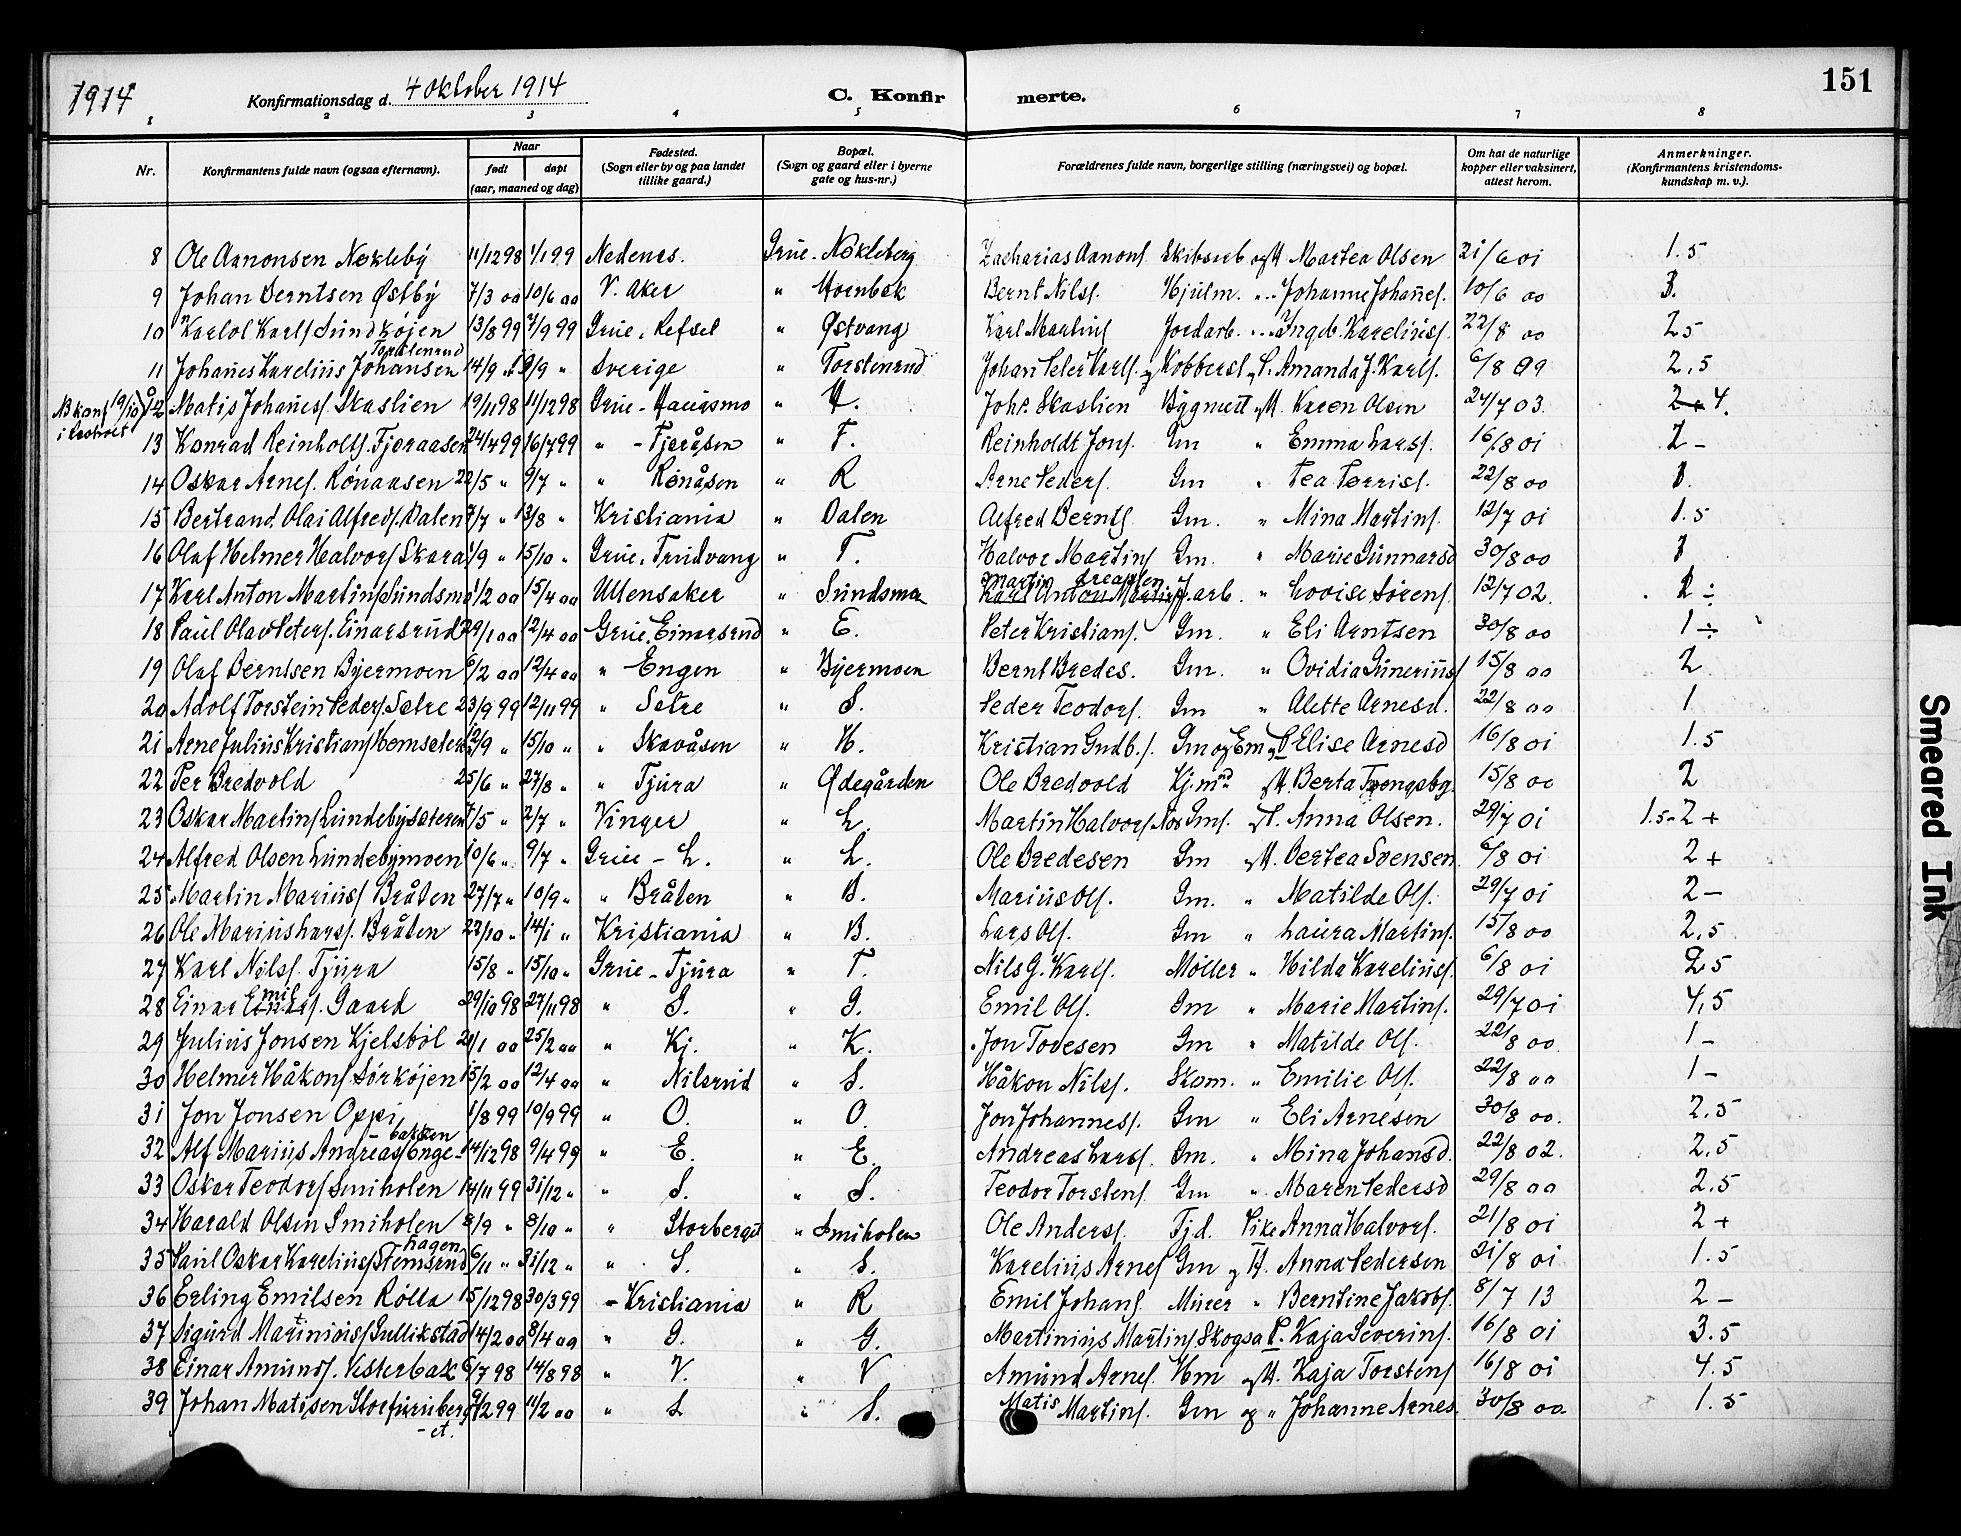 1914 Konfirmationsdag d. 4 oktober 1914 C. Konfir merte. 151
1 2 3 4 5 6 7 8
Nr. Konfirmantens fulde navn (ogsaa efternavn). Naar født døpt (aar, maaned og dag) Fødested. (Sogn eller by og paa landet tillike gaard.) Bopæl. (Sogn og gaard eller i byerne gate og hus-nr.) Forældrenes fulde navn, borgerlige stilling (næringsvei) og bopæl. Om hat de naturlige kopper eller vaksinert, attest herom. Anmerkninger. (Konfirmantens kristendoms-kundskap m. v.).
8 Ole Aanonsen Nøkleby 11/12 98 1/1 99 Nedenes. Grue - Nøkleberg Zacharias Aanons. Skibsreb og M. Martea Olsen 21/6 01 1.5
9 Johan Berntsen Østby 7/3 00 10/6 00 V. Aker " Hornbæk Bernt Nils. Hjulm. " Johanne Johanes. 10/6 00 3.
10 Karlol Karls Sundkøjen 13/8 99 7/9 99 Grue, Refset " Østvang Karl Martins Jordarb. " Ingeb. Kareliuss. 22/8 00 2 5
11 Johanes Karelius Johansen Torstenrud 14/9 " /9 " Sverige " Torstenrud Johan Peter Karls. Kobbersl. og P. Amanda J. Karls. 6/8 09 2,5
NB konf 19/10 i Rastvolt 12 Matis Johanes. Skaslien 19/11 98 11/12 98 Grue - Haugsmo " H. Johs. Skaslien Bygmest og M. Karen Olsen 24/7 03. 4.
13 Konrad Reinholts. Fjeraasen 24/4 99 16/7 99 " - Fjeråsen " F. Reinholdt Jons. Gm " Emma Larss. 16/8 01 2 -
14 Oskar Arnes. Rønaasen 22/5 " 9/7 " " Rønåsen " R Arne Peders. Gm " Tea Torriss. 22/8 00 1.
15 Bertrand Olai Alfreds. Dalen 7/7 " 13/8 " Kristiania " Dalen Alfred Bernts. Gm. " Mina Martins. 12/7 01 1.5
16 Olaf Helmer Halvors Skara 1/9 " 15/10 " Grue, Trudvang " T. Halvor Martins Gm. " Marie Gunnarsd 30/8 00 1
17 Karl Anton Martins Sundsmo 1/2 00 15/4 00 Ullensaker " Sundsmoen Karl Anton Martins Martin Andreasen J. arb. " Lovise Sørens. 12/7 02. 2 ÷
18 Paul Olav Peters. Einarsrud 29/1 00 12/4 00 Grue, Einarsrud " E. Peter Kristians. Gm. " Eli Arntsen 30/8 00 1 ÷
19 Olaf Berntsen Byermoen 6/2 00 12/4 00 " Engen " Byermoen Bernt Bredes. Gm. " Ovidia Guneriuss 15/8 00 2
20 Adolf Torstein Peders. Sætre 23/9 99 12/11 99 " Sætre " S. Peder Teodors. Gm " Alette Arnesd. 22/8 00 1
21 Arne Julius Kristians Hemseteren 12/9 " 15/10 " " Skavåsen " H. Kristian Gudb. s. Gm og Em og P Elise Arnesd 16/8 01 1.5
22 Per Bredvold 25/6 " 27/8 " " Tjura " Ødegården Ole Bredvold Kj.mnd og M. Berta Tvengsbg. 15/8 00 2
23 Oskar Martins Lundebysæteren 7/5 " 2/7 " Vinger " L. Martin Halvors. Gms. og P. Anna Olsen. 29/7 01 1.5-2 +
24 Alfred Olsen Lundebymoen 10/6 " 9/7 " Grue - L. " L. Ole Bredesen Gm og M. Oertea Svensen. 6/8 01 2 +
25 Martin Marius. Bråten 27/7 " 10/9 " " Bråten " B. Marius Ols. Gm. " Matilde Ols. 29/7 01 2 -
26 Ole Marius Larss. Bråten 22/10 " 14/1 " Kristiania " B. Lars Ols. Gm " Laura Martins. 15/8 00 2,5
27 Karl Nils. Tjura 15/8 " 15/10 " Grue - Tjura " T. Nils G. Karls. Møller " Hilda Kareliuss. 6/8 01 2 5
28 Einar Emils. Gaard 29/10 98 27/11 98 " G. " G. Emil Ols. Gm " Marie Martins. 29/7 01 4,5
29 Julius Jonsen Kjelsbøl 21/1 00 25/2 00 " Kj. " K. Jon Tovesen Gm " Matilde Ols. 22/8 00 1 -
30 Helmer Håkons. Sørkøjen 15/2 00 12/4 00 " Nilsrud " S. Håkon Nils. Skom. " Emilie Ols. 22/8 00 1 -
31 Jon Jonsen Oppi 1/8 99 10/9 99 " O. " O. Jon Johanness. Gm " Eli Arnesen 30/8 00. 2.5
32 Alf Marius Andreass Engebakken 14/12 98 9/4 99 " E. " E. Andreas Larss. Gm. " Mina Johansd. 22/8 02. 2.5
33 Oskar Teodors Smiholen 14/11 99 31/12 " " S. " S. Teodor Torstens. Gm " Maren Pedersd 29/8 00 2.5
34 Harald Olsen Smiholen 8/9 " 8/10 " " Storberget " Smiholen Ole Anders. Tjd. Pike Anna Halvors. 21/8 01 2 +
35 Paul Oskar Kareliuss Stemsrudhagen 6/11 " 31/12 " " S. " S. Karelius Arnes Gm og H. Anna Pedersen 21/8 01 1.5
36 Erling Emilsen Rolla 15/12 98 30/3 99 - Kristiania " R Emil Johans. Murer " Berntine Jakobs. 8/7 13 2 -
37 Sigurd Martinius Gullikstad 14/2 00 8/4 00 " G. " G. Martinius Martins Skogsa P. Kaja Severins. 16/8 01 3.5
38 Einar Amunds. Vesterbak 6/7 98 14/8 98 " V. " V Amund Arnes. Hm og M. Kaja Torstens 16/8 01 4.5
39 Johan Matisen Storfuruberg-et. 9/12 99 11/2 00 " S " S. Matis Martins. Gm og " Johanne Arnes. 30/8 00. 1.5
Smeared Ink